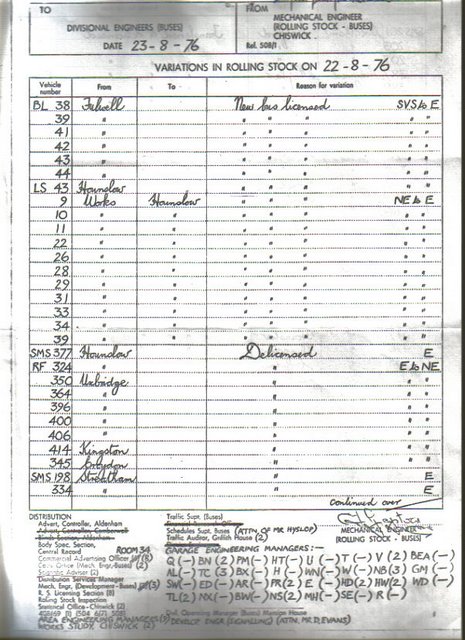 TO
FROM
DIVISIONAL ENGINEERS (BUSES)
MECHANICAL ENGINEER
(ROLLING STOCK - BUSES)
CHISWICK
DATE 23-8-76
Ref. 508/1
VARIATIONS IN ROLLING STOCK ON 22-8-76
Vehicle number From To Reason for variation
BL 38 Fulwell New bus licensed SVS to E
39 " " " " " "
41 " " " " " "
42 " " " " " "
43 " " " " " "
44 " " " " " "
LS 43 Hounslow " " " " "
9 Works Hounslow " " " NE to E
10 " " " " " " "
11 " " " " " " "
22 " " " " " " "
26 " " " " " " "
28 " " " " " " "
29 " " " " " " "
31 " " " " " " "
33 " " " " " " "
34 " " " " " " "
39 " " " " " " "
SMS 377 Hounslow Delicensed E
RF 324 " " E to NE
350 Uxbridge " " "
364 " " " "
396 " " " "
400 " " " "
406 " " " "
414 Kingston " " "
345 Croydon " " "
SMS 198 Streatham " E
334 " " E
continued over
DISTRIBUTION
Advert. Controller, Aldenham
Body Spec. Section,
Central Record ROOM 34
Commercial Advertising Officer
Distribution Services Manager
Mech. Engr. (Development-Buses) (3)
R. S. Licensing Section (8)
Rolling Stock Inspection
Statistical Office - Chiswick (2)
AREA ENGINEERING MANAGERS (3)
WORKS STUDY, CHISWICK (2)
Traffic Supt. (Buses)
Schedules Supt. Buses (ATTN. OF MR HYSLOP)
Traffic Auditor, Griffith House (2)
MECHANICAL ENGINEER
(ROLLING STOCK - BUSES)
GARAGE ENGINEERING MANAGERS:-
Q (-) BN (2) PM (-) HT (-) U (-) T (-) V (2) BEA (-)
AL (-) TC (3) BX (-) H (-) WN (-) W (-) NB (3) GM (-)
SW (-) ED (-) AR (-) PR (2) E (-) HD (2) HW (2) WD (-)
TL (2) NX (-) BW (-) NS (2) MH (-) SE (-) R (-)
DEVELOP. ENGR. (SIGNALLING) (ATTN. MR D. EVANS)